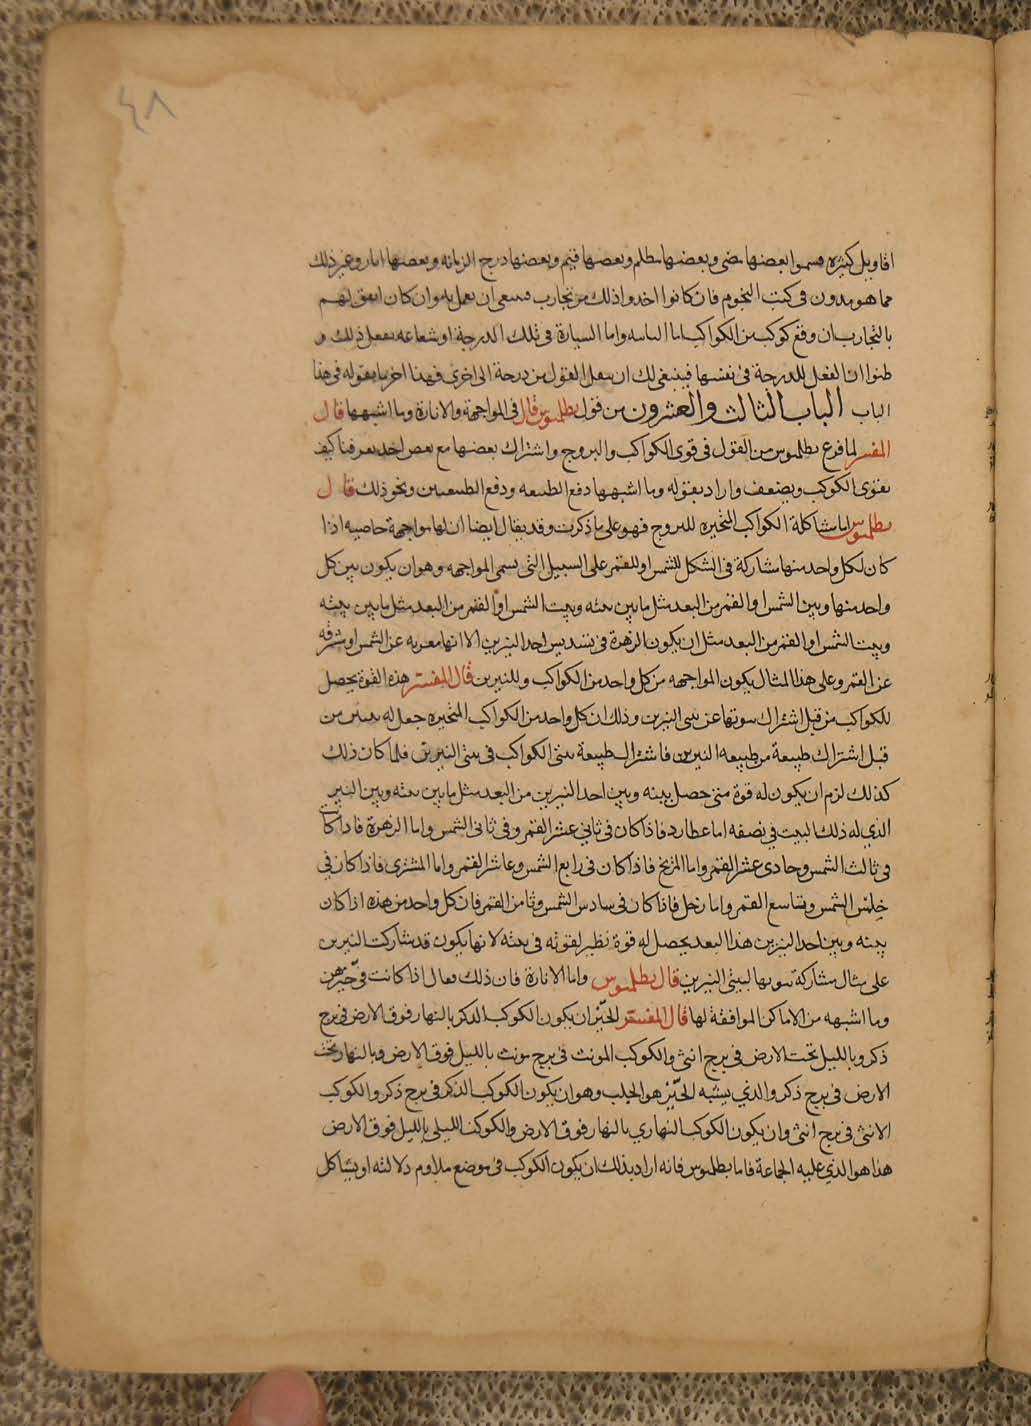 ٤٨
اقاويل كثيره فسموا بعضها مضى وبعضها مظلم وبعضها قيم وبعضها درج الزمانه وبعضها ابار وغير ذلك
مما هو مدون في كتب النجوم فان كانوا اخدوا ذلك من تجارب فينبغى ان يعمل به وان كان اتفق لهم
بالتجارب ان وقع كوكب من الكواكب اما الثابتة واما السيارة في تلك الدرجة او شعاعه بفعل ذلك و
ظنوا ان الفعل للدرجة في نفسها فينبغى لك ان ينقل القول من درجة الى اخرى فهذا اخر ما يقوله في هذا
الباب الباب الثالث والعشرون من قول بطلميوس قال في المواجهة والانارة وما اشبهها قال
المفسر لما فرغ بطلميوس من القول في قوى الكواكب والبروج واشتراك بعضها مع بعض اخذ يعرفنا كيف
يقوى الكوكب ويضعف واراد بقوله وما اشبهها دفع الطبيعه ودفع الطبيعتين ونحو ذلك قال
بطلميوس اما مشاكلة الكواكب المتحيره للبروج فهو على ما ذكرت وقد يقال ايضا ان لها مواجهة خاصيه اذا
كان لكل واحد منها مشاركة في الشكل للشمس او للقمر على السبيل التي يسمى المواجهه وهو ان يكون بين كل
واحد منها وبين الشمس او القمر من البعد مثل ما بين بيته وبيت الشمس او القمر من البعد مثل ما بين بيته
وبيت الشمس او القمر من البعد مثل ان يكون الزهرة في تسديس احد النيرين الا انها مغربه عن الشمس او مشرقه
عن القمر وعلى هذا المثال يكون المواجهه من كل واحد من الكواكب وللنيرين قال المفسر هذه القوة يحصل
للكواكب من قبل اشتراك بيوتها عن بيتى النيرين وذلك ان كل واحد من الكواكب المتحيره جعل له بيتين من
قبل اشتراك طبيعة من طبيعه النيرين فاشترك طبيعة بيتى الكواكب في بيتى النيرين فلما كان ذلك
كذلك لزم ان يكون له قوة متى حصل بينه وبين احد النيرين من البعد مثل ما بين بيته وبين النير
الذي له ذلك البيت في نصفه اما عطارد فاذا كان في ثاني عشر القمر وفي ثاني الشمس واما الزهرة فاذا كانت
في ثالث الشمس وحادى عشر القمر واما المريخ فاذا كان في رابع الشمس وعاشر القمر واما المشترى فاذا كان في
خامس الشمس وتاسع القمر واما زحل فاذا كان في سادس الشمس وثامن القمر فان كل واحد من هذه اذا كان
بينه وبين احد النيرين هذا البعد يحصل له قوة نظير لقوته في بيته لانها يكون قد شاركت النيرين
على مثال مشاركة بيوتها لبيتى النيرين قال بطلميوس واما الانارة فان ذلك يقال اذا كانت في حيزهن
وما اشبهه من الاماكن الموافقة لها قال المفسر الحيز ان يكون الكوكب الذكر بالنهار فوق الارض في برج
ذكر وبالليل تحت الارض في برج انثى والكوكب المونث في برج مونث بالليل فوق الارض وبالنهار تحت
الارض في برج ذكر والذي يشبه الحيز هو الحلب وهو ان يكون الكوكب الذكر في برج ذكر والكوكب
الانثى في برج انثى وان يكون الكوكب النهاري بالنهار فوق الارض والكوكب الليلى بالليل فوق الارض
هذا هو الذي عليه الجماعة فاما بطلميوس فانه اراد بذلك ان يكون الكوكب في موضع ملاوم دلالته او يشاكل